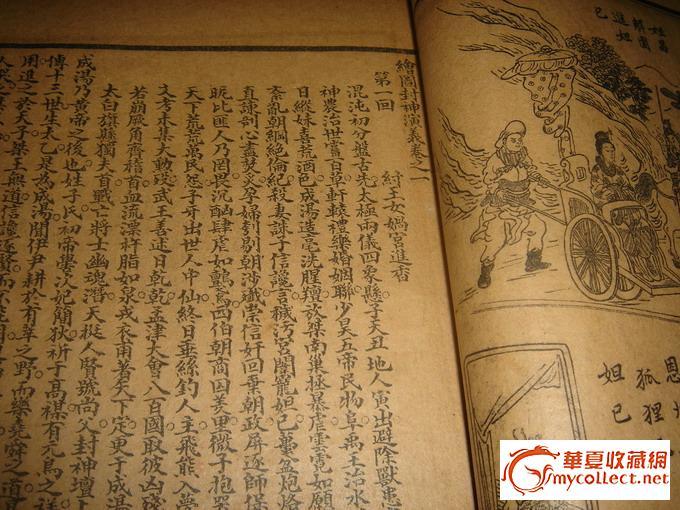 繪圖封神演義卷之一
第一回　紂王女媧宮進香
混沌初分盤古先太極兩儀四象懸子天丑地人寅出避除獸患
神農治世嘗百草軒轅禮樂婚姻聯少昊五帝民物阜禹王治水
日縱妹喜荒酒色成湯造亳洗腥羶放桀南巢拯暴虐雲霓如願
紊亂朝綱絕倫紀殺妻誅子信讒言穢污宮闈寵妲己蠆盆炮烙
直諫剖心盡焚炙孕婦刳剔朝涉殲崇信奸回棄朝政屏逐師保
昵比匪人乃罔畏沉酗肆虐如鸇鳶西伯朝商囚羑里微子抱器
天下荒荒萬民怨子牙出世人中仙終日垂絲釣人主飛熊入夢
文考未集大勳歿武王善述日乾乾孟津大會八百國取彼凶殘
若崩厥角齊稽首血流漂杵脂如泉戎衣甫著天下定更于成湯
太白旗縣獨夫首戰亡將士幽魂潛天挺人賢號尚父封神壇上
成湯乃黃帝之後也姓子氏初帝嚳次妃簡狄祈于高禖有玄鳥之祥
傳十三世生太乙是為成湯聞伊尹耕於有莘之野而樂堯舜之道
用進之於天子桀王無道信讒逐賢而不能用
進妲
己
恩
狐狸
妲己
華夏收藏網
mycollect.net